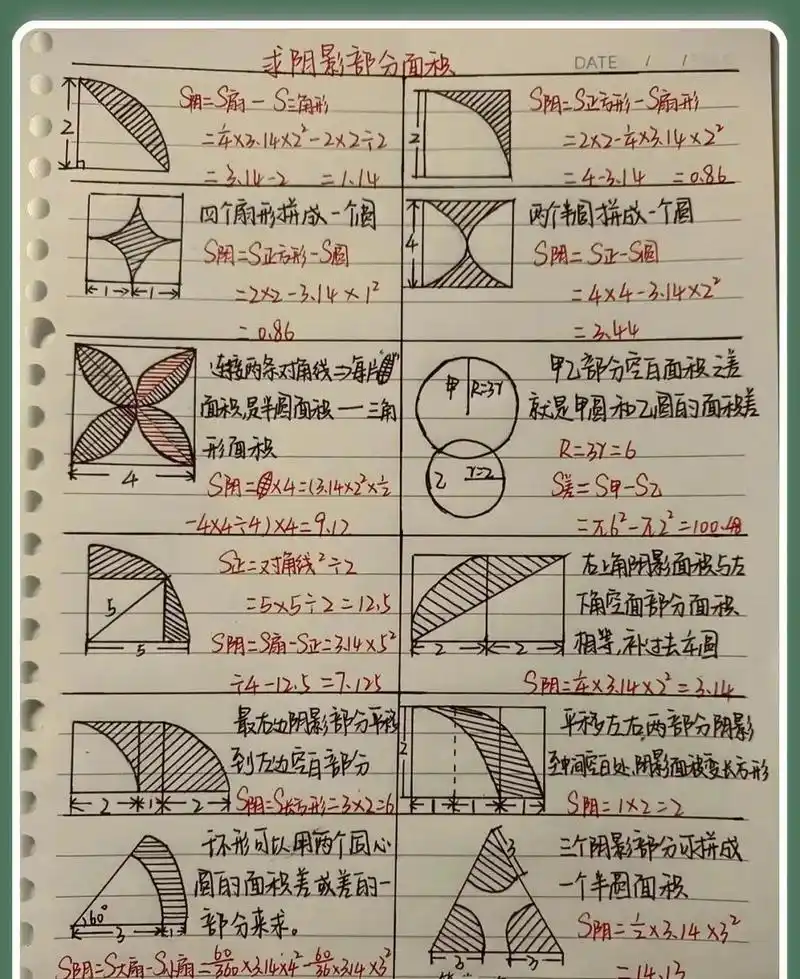 求阴影部分面积
DATE / /
2
S阴=S扇-S三角形
=¼×3.14×2²-2×2÷2
=3.14-2 =1.14
2
S阴=S正方形-S扇形
=2×2-¼×3.14×2²
=4-3.14 =0.86
1 1
四个扇形拼成一个圆
S阴=S正方形-S圆
=2×2-3.14×1²
=0.86
4
两个半圆拼成一个圆
S阴=S正-S圆
=4×4-3.14×2²
=3.44
4
连接两条对角线⇒每片
面积,是半圆面积一三角
形面积
S阴= ×4=(3.14×2²×½
-4×4÷4)×4=9.12
甲 R=3r
乙 r=2
甲乙部分空白面积之差
就是甲圆和乙圆的面积差
R=3r=6
S差=S甲-S乙
=π6²-π2²=100.48
5
5
S正=对角线²÷2
=5×5÷2=12.5
S阴=S扇-S正=3.14×5²
÷4-12.5=7.125
2 2
右上角阴影面积与左
下角空面部分面积
相等,补过去
S阴=¼×3.14×2²=3.14
2 1 2
最右边阴影部分平移
到左边空白部分
S阴=S长方形=3×2=6
2
1 1 1
平移左右,两部分阴影
至中间空白处,阴影面积变长方形
S阴=1×2=2
60°
3 1
环形可以用两个同心
圆的面积差或差的一
部分来求。
S阴=S大扇-S小扇=60/360×3.14×4²-60/36×3.14×3²
3
3 3
三个阴影部分可拼成
一个半圆面积
S阴=½×3.14×3²
=14.13